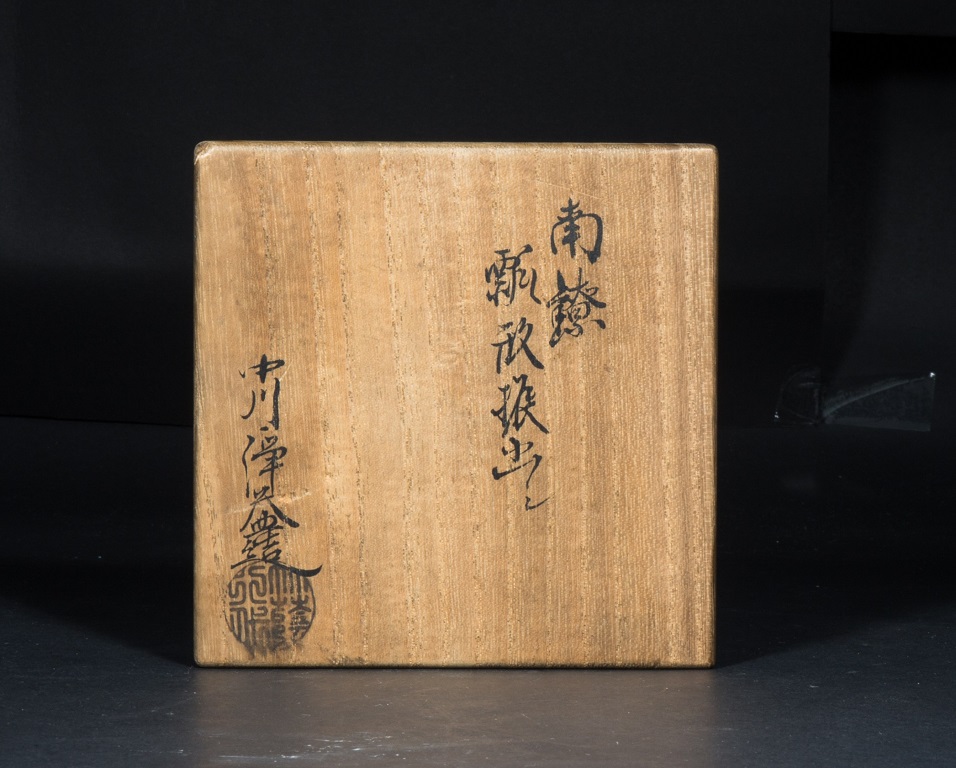 南鐐
瓢形振出し
中川浄益造